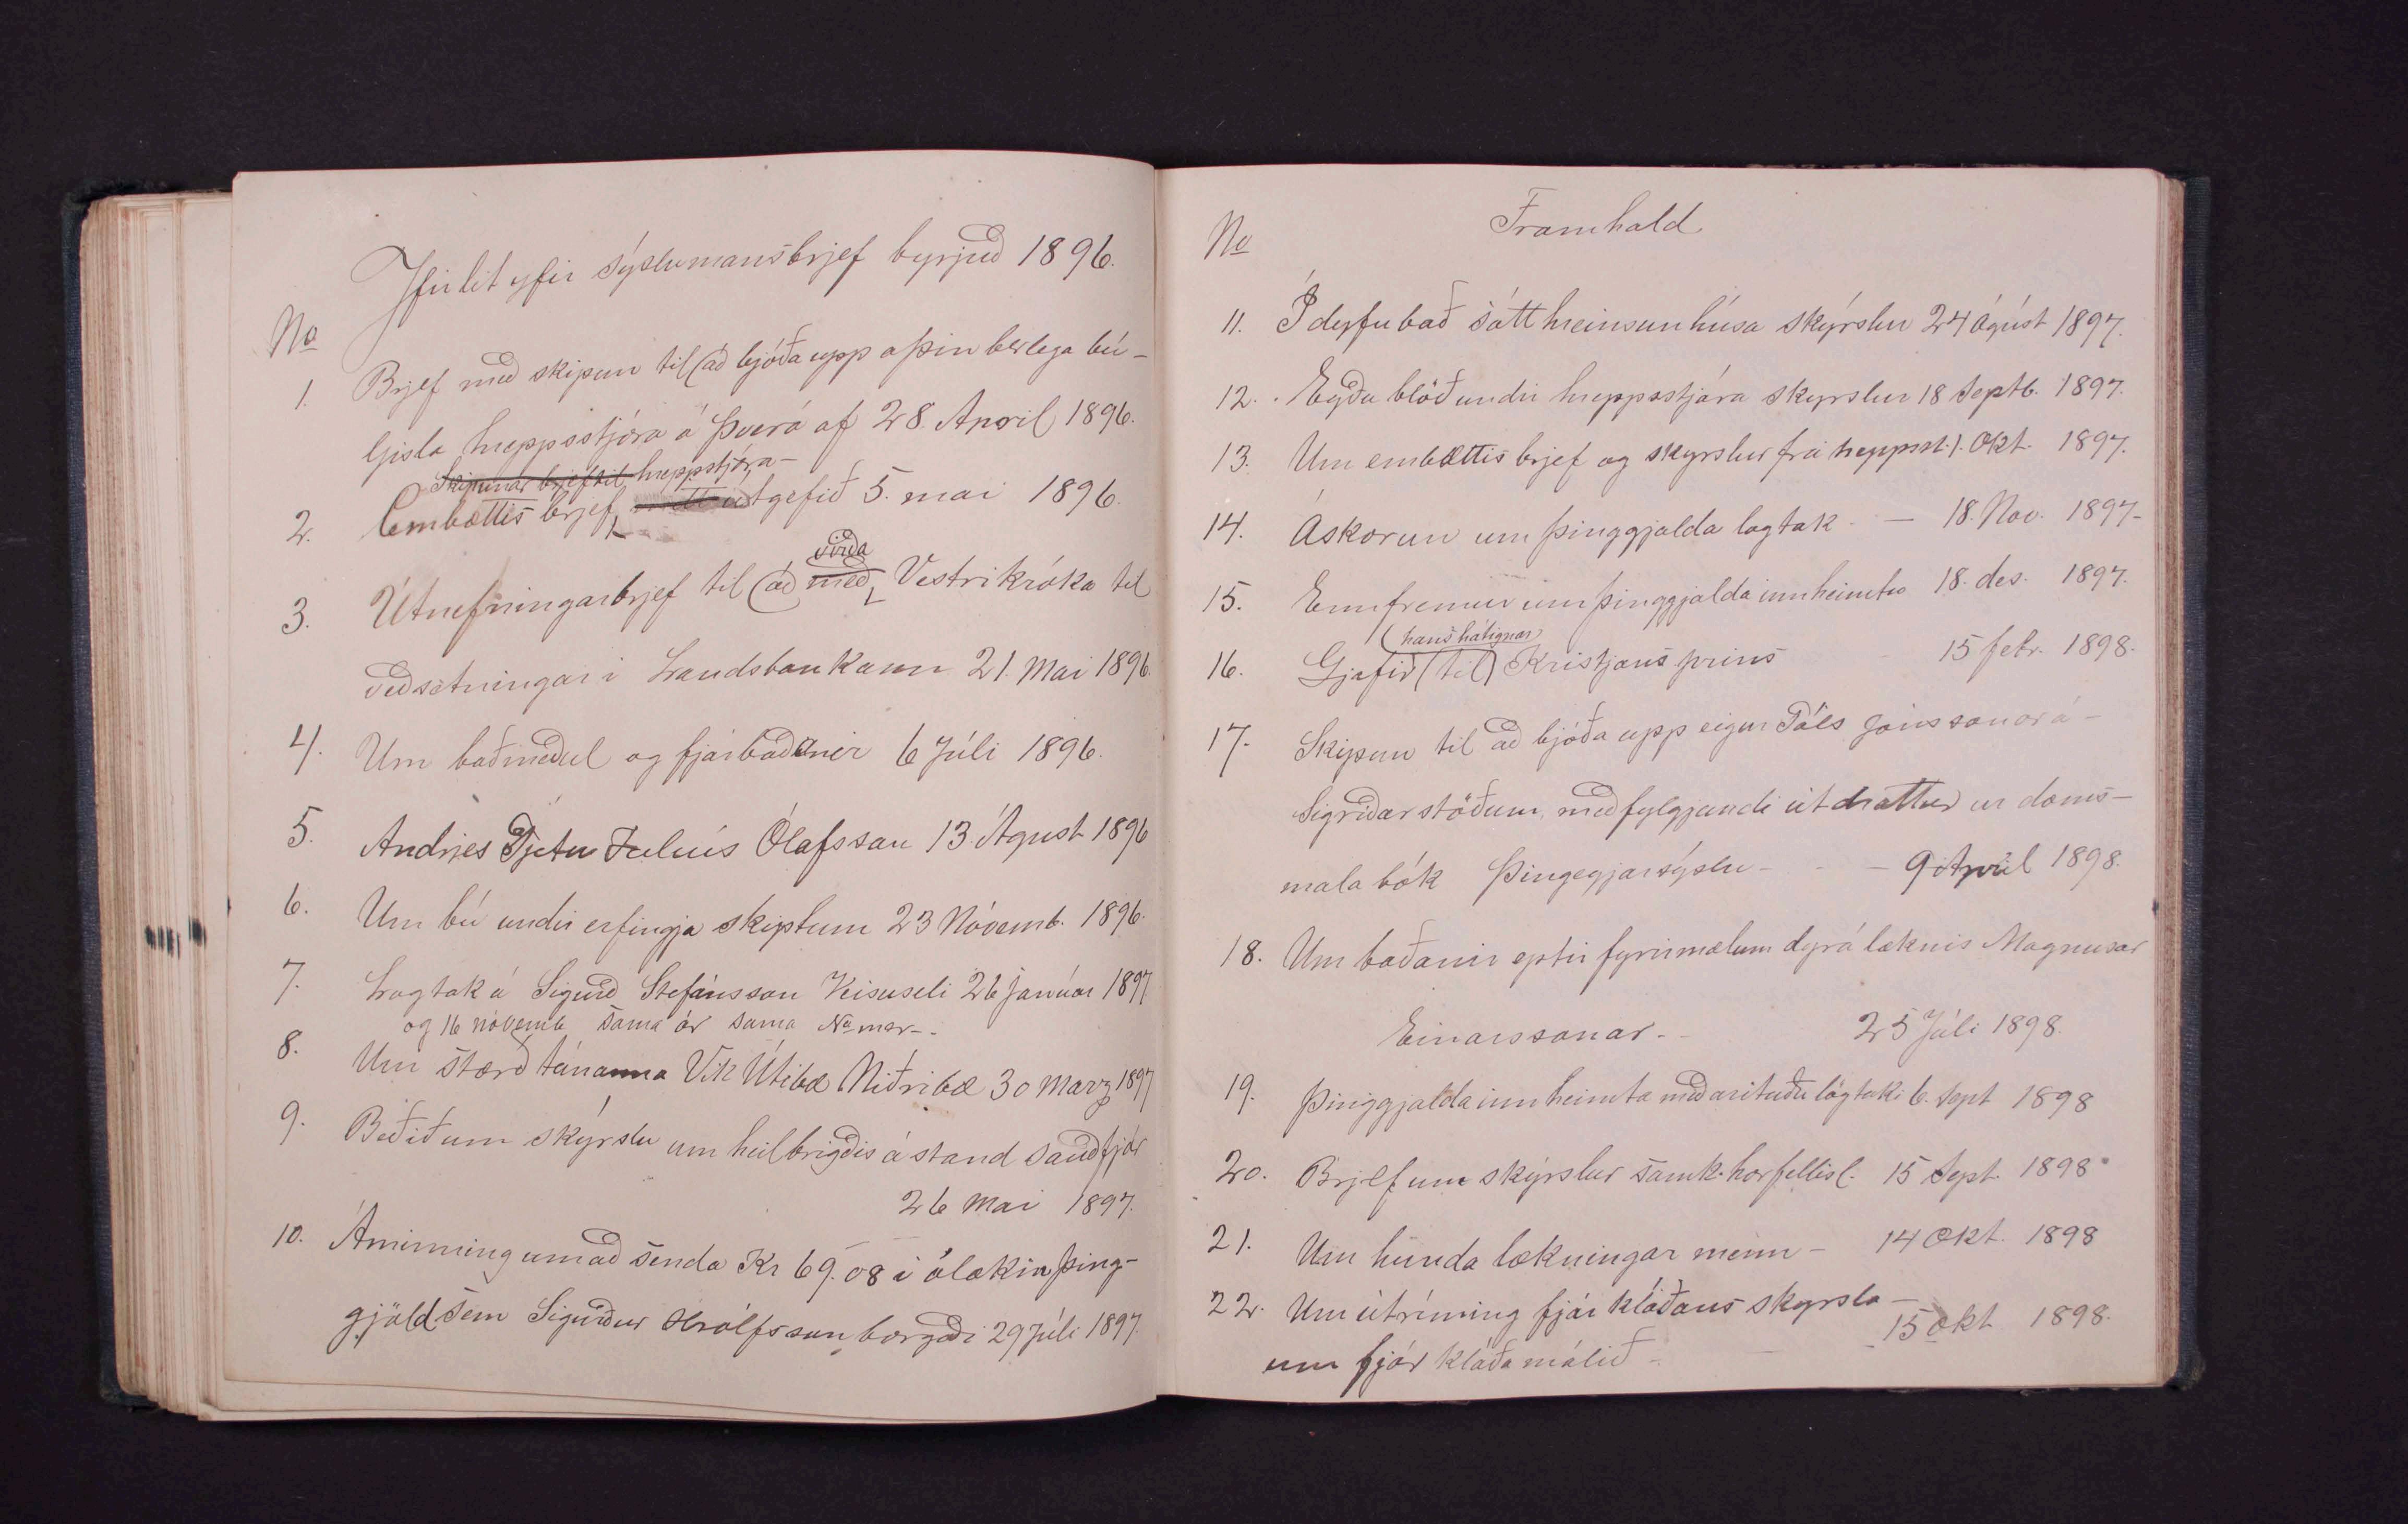 Yfirlit yfir sýslumansbrjef byrjuð 1896.
No
1. Brjef með skipun til að bjóða upp opinberlega bú-
Gisla hreppsstjóra á Þverá af 28. April 1896.
Skipunar brjef til hreppstjóra-
2. Embættis brjef útgefið 5. mai 1896.
virða
3. Útnefningarbrjef til að með Vestrikróka til
veðsetningar i Landsbankann 21. Mai 1896.
4. Um baðmeðul og fjárbaðanir 6 Júli 1896.
5. Andrjes Pjetur Juliús Ólafsson 13. Águst 1896
6. Um bú undir erfingja skiptum 23 Nóvemb. 1896.
7. Lagtak á Sigurð Stefánsson Kisuseli 26 Janúar 1897
og 16 nóvemb sama ár sama No mer-
8. Um stærð túnanna Vik Útibæ Niðribæ 30 Marz 1897
9. Beðið um skýrslu um heilbrigðis ástand sauðfjár
26 Mai 1897.
10. Áminning um að senda Kr 69.08 i ólokin þing-
gjöld sem Sigurður Hrólfsson borgaði 29 Júli 1897.
Framhald
No
11. Ídyfu bað sótthreinsun húsa skýrslu 24 ágúst 1897.
12. Eyðu blöð undir hreppsstjóra skyrslur 18 Septb. 1897.
13. Um embættis brjef og skyrslur frá hreppsst. 1. Okt. 1897.
14. Áskorun um þinggjalda logtak - - 18. Nov. 1897-
15. Ennfremur um þinggjalda innheimtu 18. des. 1897.
hans hátignar
16. Gjafir (til) Kristjans prins 15 febr. 1898.
17. Skipun til að bjóða upp eigur Páls Jónssonar á-
Sigriðarstöðum, meðfylgjandi útdrattur ur doms-
mala bók Þingeyjarsýslu - - - 9 April 1898.
18. Um baðanir eptir fyrirmælum dyrálæknis Magnusar
Einarssonar. - 25 Júli 1898.
19. Þinggjalda innheimta með arituðu lögtaki 6. Sept 1898
20. Brjef um skýrslur samk. horfellisl. 15 Sept. 1898
21. Um hunda lækningar menn - 14 Okt. 1898
22. Um útrýming fjárkláðans skyrsla -
um fjár kláða málið - 15 Okt 1898.